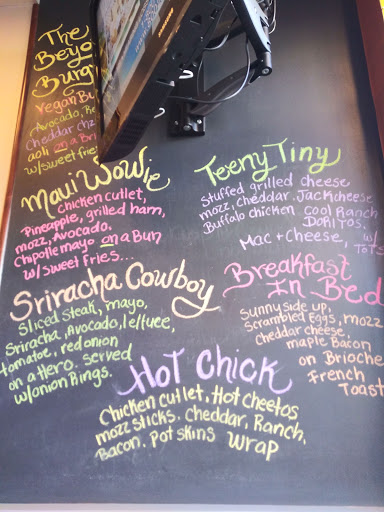 The
Beyo
Burg
Vegan Bu
Avocado, Re
Cheddar Chz
aoli on a Bri
w/sweet fries
Maui Wowie
chicken cutlet,
Pineapple, grilled ham,
mozz, Avocado,
Chpotle mayo on a Bun
w/ Sweet Fries...
Teeny Tiny
Stuffed grilled cheese
mozz, cheddar, Jack cheese
Buffalo chicken Cool Ranch
DORITOS.
Mac + Cheese, w/
TOTS
Sriracha Cowboy
Sliced Steak, mayo,
Sriracha, Avocado, lettuce,
tomatoe, red onion
on a Hero. Served
w/onion Rings.
Breakfast
In Bed
Sunny side up,
Scrambled Eggs, mozz
Cheddar cheese,
maple Bacon
on Brioche
French
Toast
HOT CHICK
Chicken cutlet, Hot cheetos
mozz sticks. cheddar, Ranch,
Bacon, Pot skins Wrap